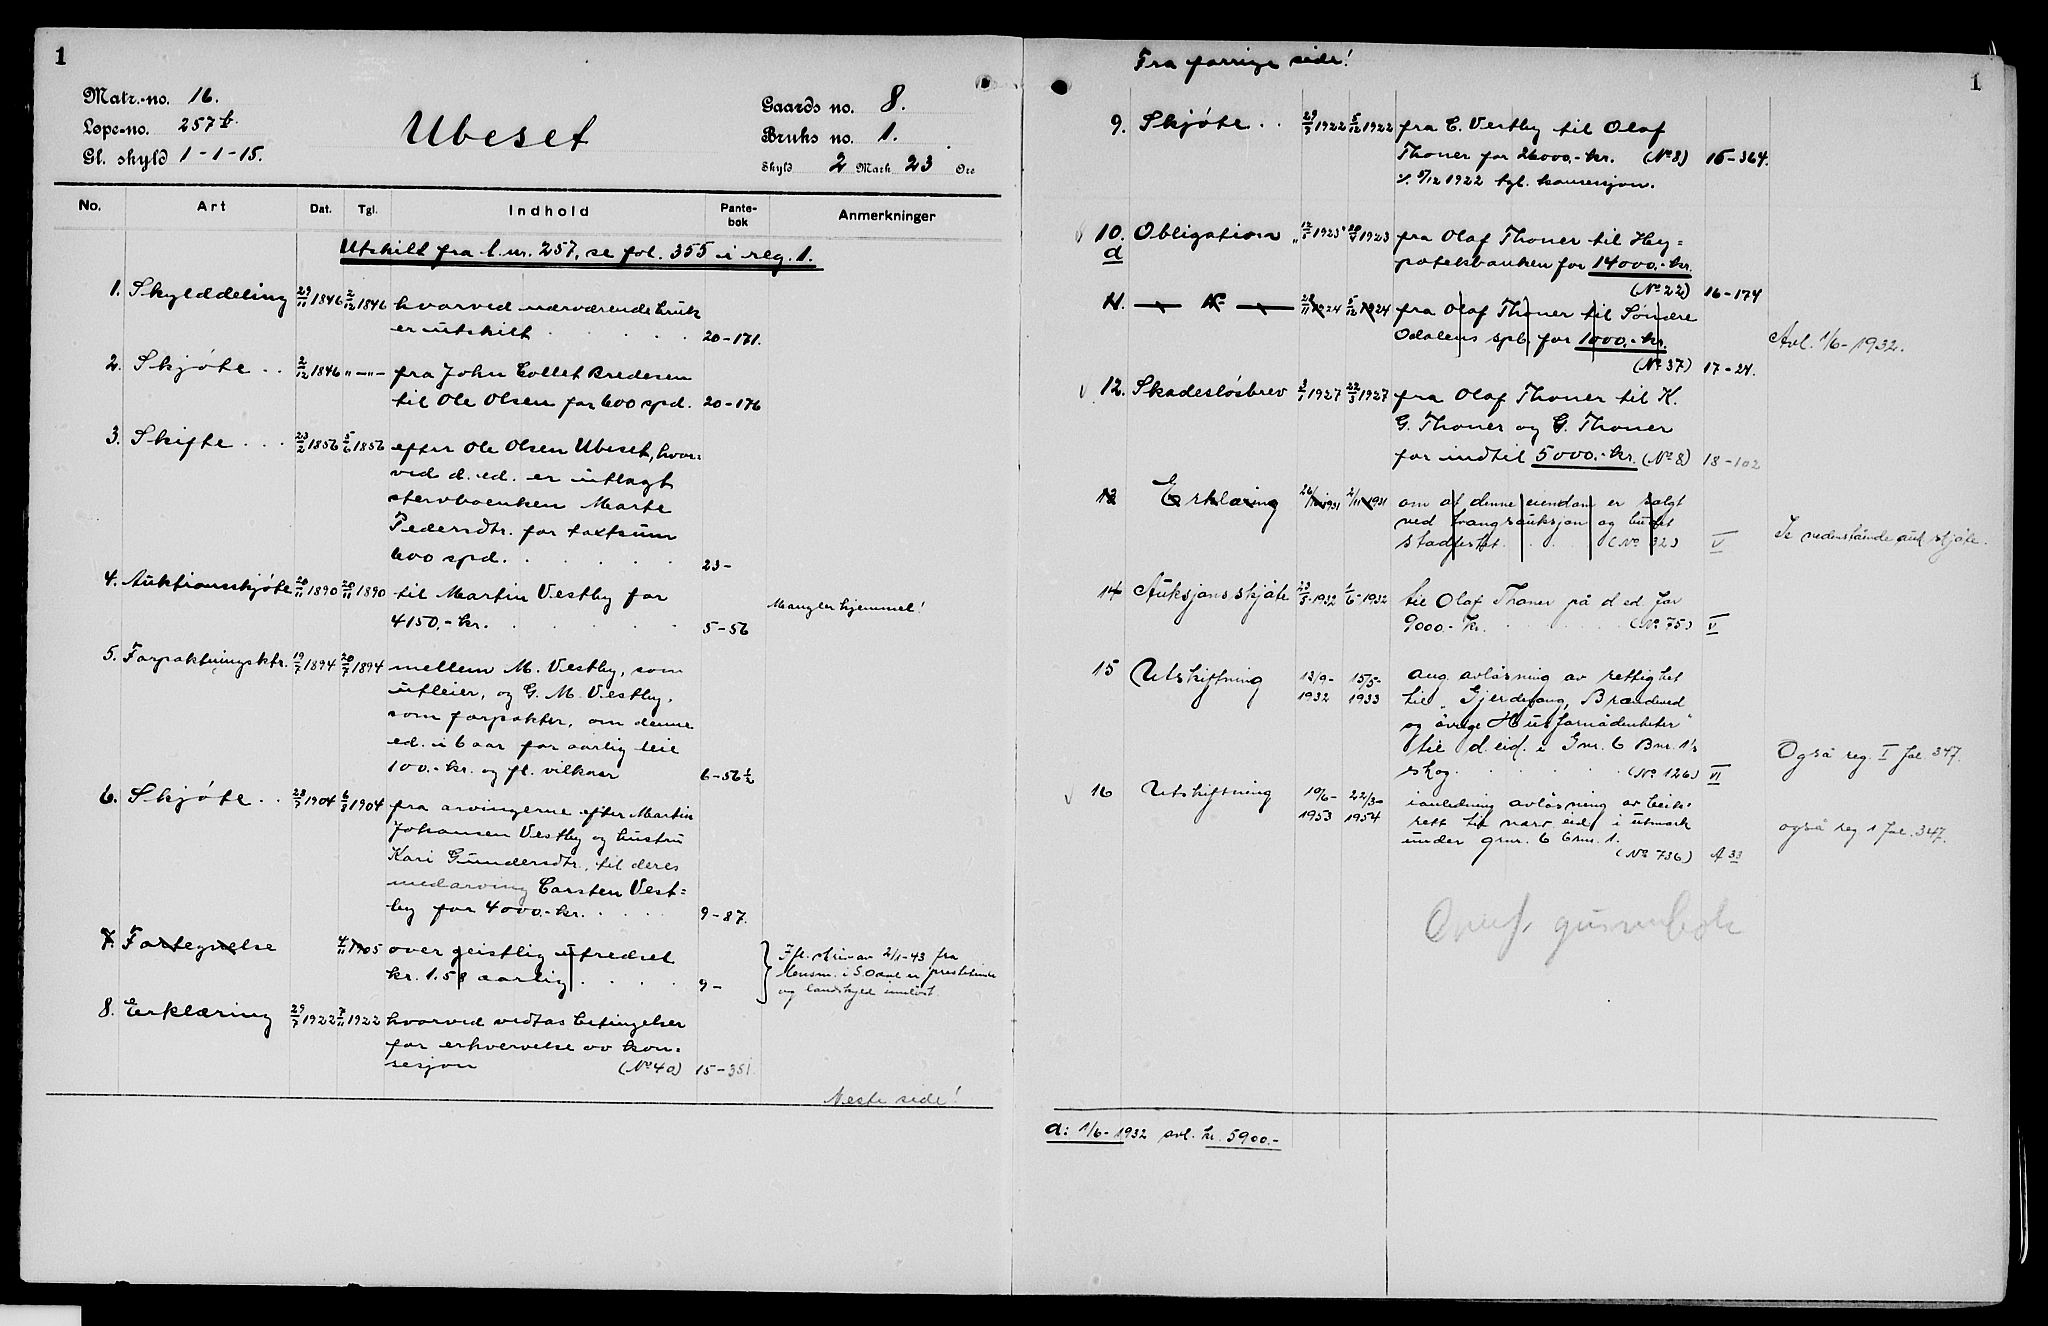 1
Matr.-no. 16.
Løpe-no. 257 b.
Gl. skyld 1-1-15.
Ubeset
Gaards no. 8.
Bruks no. 1.
Skyld 2 Mark 23 Øre
No. Art Dat. Tgl. Indhold Pante-bok Anmerkninger
Utskilt fra l.nr. 257, se fol. 355 i reg. 1.
1. Skylddeling 29/11 1846 2/12 1846 hvorved nærværende bruk
er utskilt . . . . 20-171.
2. Skjøte . . 2/12 1846 "—"— fra John Collet Bredesen
til Ole Olsen for 600 spd. 20-176
3. Skifte . . . 23/2 1856 5/6 1856 efter Ole Olsen Ubeset, hvor=
ved d. ed. er utlagt
stervboenken Marte
Pedersdtr. for taxtsum
600 spd. . . . . . . 23-
4. Auktionsskjøte 20/11 1890 20/11 1890 til Martin Vestby for
4150.- kr. . . . . . 5-56
Mangler hjemmel!
5. Forpaktningsktr. 19/7 1894 20/7 1894 mellem M. Vestby, som
utleier, og G. M. Vestby,
som forpakter, om denne
ed. i 6 aar for aarlig leie
100.- kr. og fl. vilkaar 6-56½
6. Skjøte . . 28/7 1904 6/8 1904 fra arvingerne efter Martin
Johansen Vestby og hustru
Kari Gundersdtr. til deres
medarving Carsten Vest=
by for 4000.- kr. . . . . 9-87.
7. Fortegnelse 4/11 1905 over geistlig utredsel
kr. 1.58 aarlig . . . . 9-
Ifl. skriv av 2/1-43 fra
lensm. i S. Odal er prestetiende
og landskyld innløst.
8. Erklæring 29/7 1922 7/11 1922 hvorved vedtas betingelser
for erhvervelse av kon=
sesjon (No 40) 15-351.
Neste side!
Fra forrige side!
1
9. Skjøte . . 29/7 1922 5/12 1922 fra C. Vestby til Olaf
Thoner for 26000.- kr. (No 8) 15-364.
5/12 1922 tgl. konsesjon.
10. Obligation 12/7 1923 1923 fra Olaf Thoner til Hy=
d
potekbanken for 14000.- kr.
(No 22) 16-174
11. — " — 28/11 1924 5/12 1924 fra Olaf Thoner til Søndre
Odalens spb. for 1000.- kr.
(No 37) 17-24.
Avl. 1/6-1932.
12. Skadesløsbrev 3/1 1927 22/3 1927 fra Olaf Thoner til K.
G. Thoner og G. Thoner
for indtil 5000.- kr. (No 8) 18-102
13 Erklæring 26/10 1931 2/11 1931 om at denne eiendom er solgt
ved tvangsauksjon og budet
stadfestet. . . . (No 32) V
Se nedenstående auk skjøte.
14 Auksjonsskjøte 23/5-1932 1/6-1932 til Olaf Thoner på d ed. for
9000.- kr. . . . . . (No 75) V
15 Utskiftning 13/9- 15/5- ang. avløsning av rettighet
1932 1933 til „Gjerdefang, Brændeved
og øvrige Husfornødenheter"
til d. eid. i Gnr. 6 Bnr. 1's
skog. . . . . . (No 126) VI
Også reg. I fol 347.
16 Utskiftning 10/6- 22/3- i anledning avløsning av beite-
1953 1954 rett til nærv. eid. i utmark
under gnr. 6 bnr. 1.
(No 736) A 33
også reg 1 fol. 347.
Overf. grunnbok
a: 1/6-1932 avl. kr. 5900.-